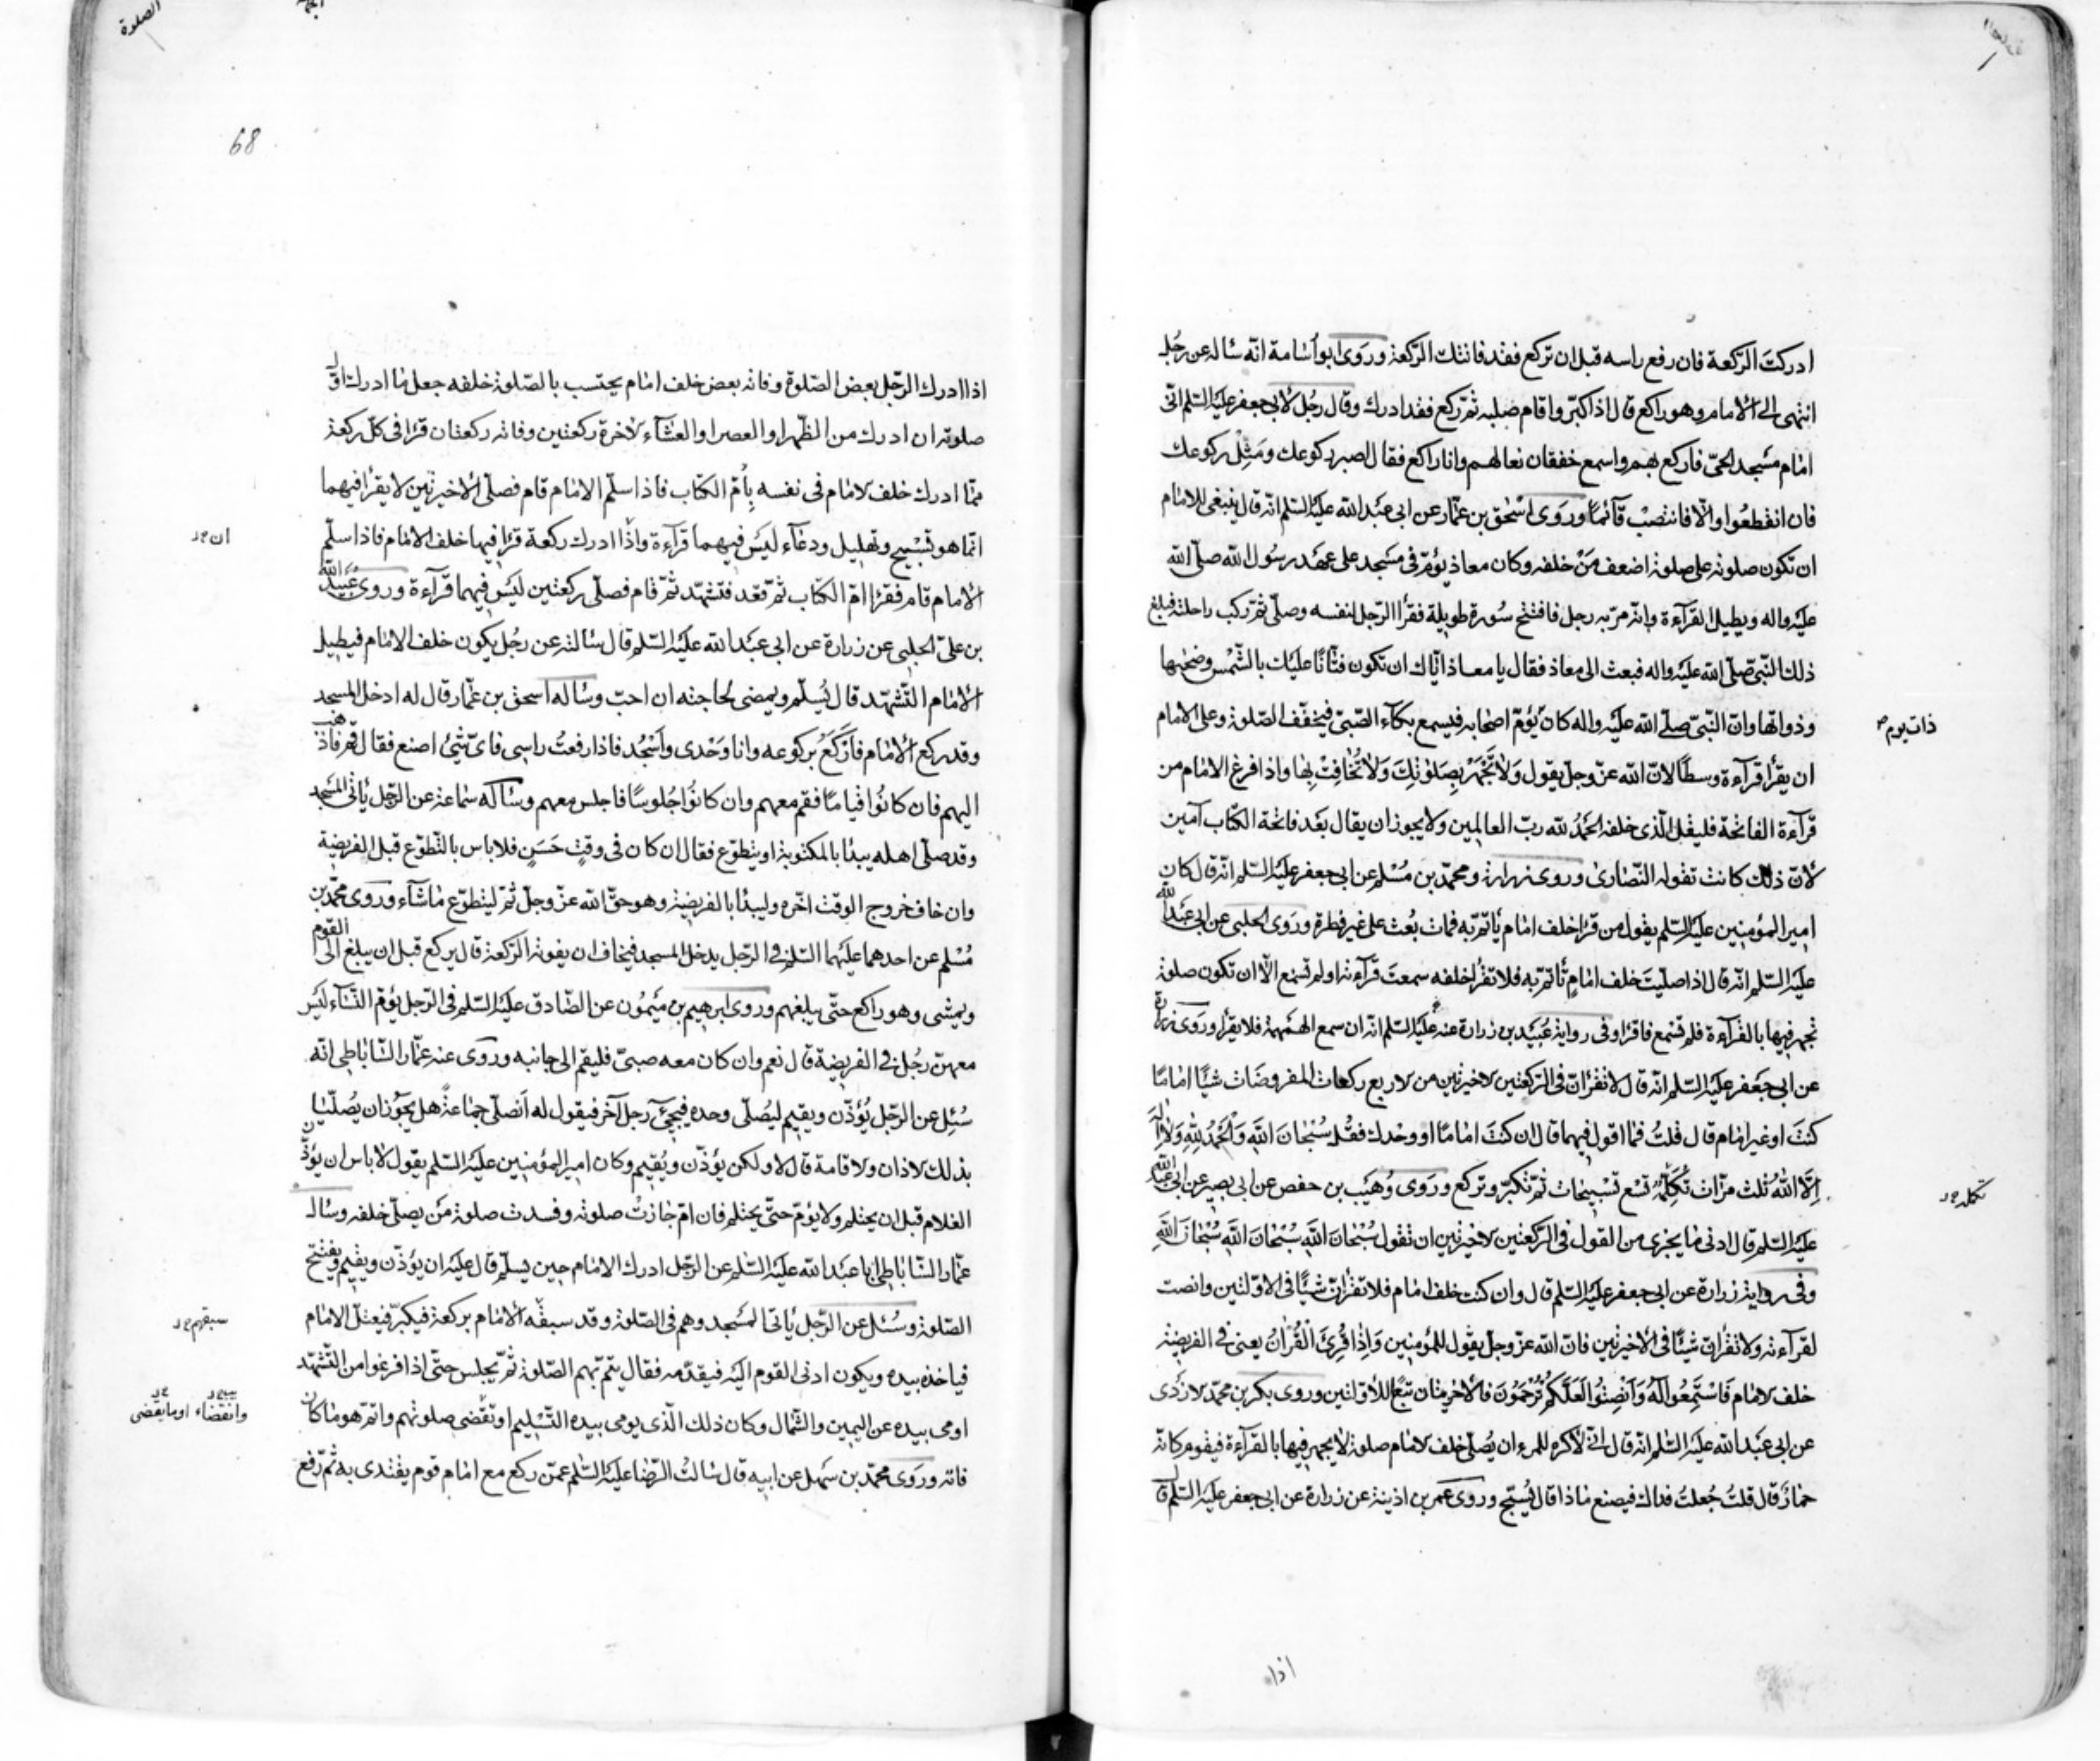 ادركتَ الرّكعة فان رفع راسه قبل ان تركع فقد فاتتك الرّكعة وروى ابو اُسامة انّه ساله عن رجُل
انتهى الى الامام وهو راكع قال اذا كبّر واقام صلبه ثمّ ركع فقد ادرك وقال رجُل لابى جعفر عليه السّلم انّى
امام مسجد الحىّ فاركع بهم واسمع خفقان نعالهم وانا راكع فقال اصبر ركوعك ومثل ركوعك
فان انقطعُوا والّا فانتصِبْ قآئمًا ورَوى اسْحٰق بن عمّار عن ابى عبد الله عليه السّلم انّه قال ينبغى للامام
ان تكون صلوته على صلوة اضعف مَنْ خلفه وكان معاذ يؤمّ فى مسجد على عهد رسُول الله صلّى الله
عليه واله ويطيل القرآءة وانّه مرّ به رجل فافتتح سُورة طويلة فقرأ الرّجل لنفسه وصلّى ثمّ ركب راحلته فبلغ
ذلك النّبى صلّى الله عليه واله فبعث الى معاذ فقال يا معاذ ايّاك ان تكون فتّانًا عليك بالشّمس وضحٰيها
وذواتها وانّ النّبىّ صلّى الله عليه واله كان يؤمّ اصحابه فيسمع بكآء الصّبىّ فيخفّف الصّلوة وعلى الامام
ذات يوم
ان يقرأ قرآءة وسطًا لانّ الله عزّ وجلّ يقول وَلا تَجْهَرْ بِصَلوٰتِكَ وَلا تُخٰافِتْ بِهٰا واذا فرغ الامام من
قرآءة الفاتحة فليقل الّذى خلفه الحمدُ لله ربّ العالمين ولا يجوز ان يقال بعد فاتحة الكتاب آمين
لانّ ذلك كانت تقوله النّصارىٰ وروى زرارة ومحمّد بن مُسْلم عن ابى جعفر عليه السّلم انّه قال كان
امير المؤمنين عليه السّلم يقول من قرأ خلف امام يأتمّ به فمات بُعث على غير فطرة ورَوى الحلبى عن ابى عبد الله
عليه السّلم انّه قال اذا صلّيتَ خلف امامٍ تأتمّ به فلا تقرأ خلفه سمعتَ قرآءته او لم تسمع الّا ان تكون صلوة
تجهر فيها بالقرآءة فلم تسمع فاقرأ وفى رواية عُبَيد بن زرارة عنه عليه السّلم انّه ان سمع الهمهمة فلا يقرأ ورَوى زرارة
عن ابى جعفر عليه السّلم انّه قال لا تقرأنّ فى الرّكعتين الاخيرتين من الاربع ركعات المفروضات شيئًا امامًا
كنتَ او غير امام قال قلتُ فما اقول فيهما قال ان كنتَ امامًا او وحدك فقُل سُبْحٰانَ اللّهِ وَالْحَمْدُ لِلّهِ وَلا اِلهَ
اِلّا اللّهُ ثلث مرّات تُكمّله تسع تسبيحات ثمّ تكبّر وتركع ورَوى وُهَيب بن حفص عن ابى بصير عن ابى عبد الله
تكمل
عليه السّلم قال ادنى ما يجزى من القول فى الرّكعتين الاخيرتين ان تقول سُبْحٰانَ اللّهِ سُبْحٰانَ اللّهِ سُبْحٰانَ اللّهِ
وفى رواية زرارة عن ابى جعفر عليه السّلم قال وان كنت خلف امام فلا تقرأنّ شيئًا فى الاوّلتين وانصت
لقرآءته ولا تقرأنّ شيئًا فى الاخيرتين فانّ الله عزّ وجلّ يقول للمؤمنين وَاِذٰا قُرِئَ الْقُرْانُ يعنى فى الفريضة
خلف الامام فَاسْتَمِعُوا لَهُ وَاَنْصِتُوا لَعَلَّكُمْ تُرْحَمُونَ فالاخيرتان تبعًا للاوّلتين وروى بكر بن محمّد الازدى
عن ابى عبد الله عليه السّلم انّه قال انّى لاكره للمرء ان يُصلّى خلف الامام صلوة لا يجهر فيها بالقرآءة فيقوم كانّه
حمار قال قلتُ جُعلتُ فداك فيصنع ماذا قال يُسبّح وروى عمر بن اذينة عن زرارة عن ابى جعفر عليه السّلم قال
اذا
الصلوة
68
اذا ادرك الرّجل بعض الصّلوة وفاته بعض خلف امام يحتسب بالصّلوة خلفه جعل ما ادرك اوّل
صلوته ان ادرك من الظّهر او العصر او العشآء الاخرة ركعتين وفاته ركعتان قرأ فى كلّ ركعة
ممّا ادرك خلف الامام فى نفسه بِاُمّ الكتاب فاذا سلّم الامام قام فصلّى الاخيرتين لا يقرأ فيهما
انّما هو تسْبيح وتهليل ودعآء ليس فيهما قرآءة واذا ادرك ركعة قرأ فيها خلف الامام فاذا سلّم
ان
الامام قام فقرأ امّ الكتاب ثمّ قعد فتشهّد ثمّ قام فصلّى ركعتين ليس فيهما قرآءة وروى عُبيد الله
بن علىّ الحلبى عن زرارة عن ابى عبد الله عليه السّلم قال سالته عن رجُل يكون خلف الامام فيطيل
الامام التّشهّد قال يُسلّم ويمضى لحاجته ان احبّ وساله اسحق بن عمّار قال له ادخل المسجد
وقد ركع الامام فاَرْكَعُ بركوعه وانا وَحْدى واَسْجُد فاذا رفعتُ راسى فاىّ شئ اصنع فقال قم فاذهب
اليهم فان كانُوا قيامًا فقم معهم وان كانُوا جُلوسًا فاجلس معهم وساله سماعة عن الرّجل يأتى المسجد
وقد صلّى اهله يبدأ بالمكتوبة او يتطوّع فقال ان كان فى وقتٍ حَسَنٍ فلا باس بالتّطوّع قبل الفريضة
وان خاف خروج الوقت اخّره وليبدأ بالفريضة وهو حقّ الله عزّ وجلّ ثمّ ليتطوّع ما شآء وروى محمّد بن
مُسْلم عن احدهما عليهما السّلم فى الرّجل يدخل المسجد فيخاف ان يفوته الرّكعة قال يركع قبل ان يبلغ الى القوم
ويمشى وهو راكع حتّى يبلغهم وروى ابرهيم بن ميمُون عن الصّادق عليه السّلم فى الرّجل يؤمّ النّسآء ليس
معهنّ رجُل فى الفريضة قال نعم وان كان معه صبىّ فليقم الى جانبه وروى عنه عمّار السّاباطى انّه
سُئِل عن الرّجل يُؤذّن ويقيم ليُصلّى وحده فيجئ رجل آخر فيقول له اَنصلّى جماعةً هل يجوز ان يُصلّيا
بذلك الاذان والاقامة قال لا ولكن يؤذّن ويُقيم وكان امير المؤمنين عليه السّلم يقول لا باس ان يؤذّن
الغلام قبل ان يحتلم ولا يؤمّ حتّى يحتلم فان امّ جازتْ صلوته وفسدت صلوة مَن يصلّى خلفه وساله
عمّار السّاباطى ابا عبد الله عليه السّلم عن الرّجل ادرك الامام حين يسلّم قال عليه ان يؤذّن ويقيم ويفتتح
الصّلوة وسُئل عن الرّجل يأتى المسجد وهم فى الصّلوة وقد سبقه الامام بركعة فيكبّر فيعتلّ الامام
سبقهم
فياخذ بيده ويكون ادنى القوم اليه فيقدّمه فقال يتمّ بهم الصّلوة ثمّ يجلس حتّى اذا فرغوا من التّشهّد
اومى بيده عن اليمين والشّمال وكان ذلك الّذى يومى بيده التّسليم او تقضّى صلوتهم واتمّ هو ما كان
وانقضاء او ما يقضى
فاته وروَى محمّد بن سَهل عن ابيه قال سالتُ الرّضا عليه السّلم عمّن ركع مع امام قوم يقتدى به ثمّ رفع